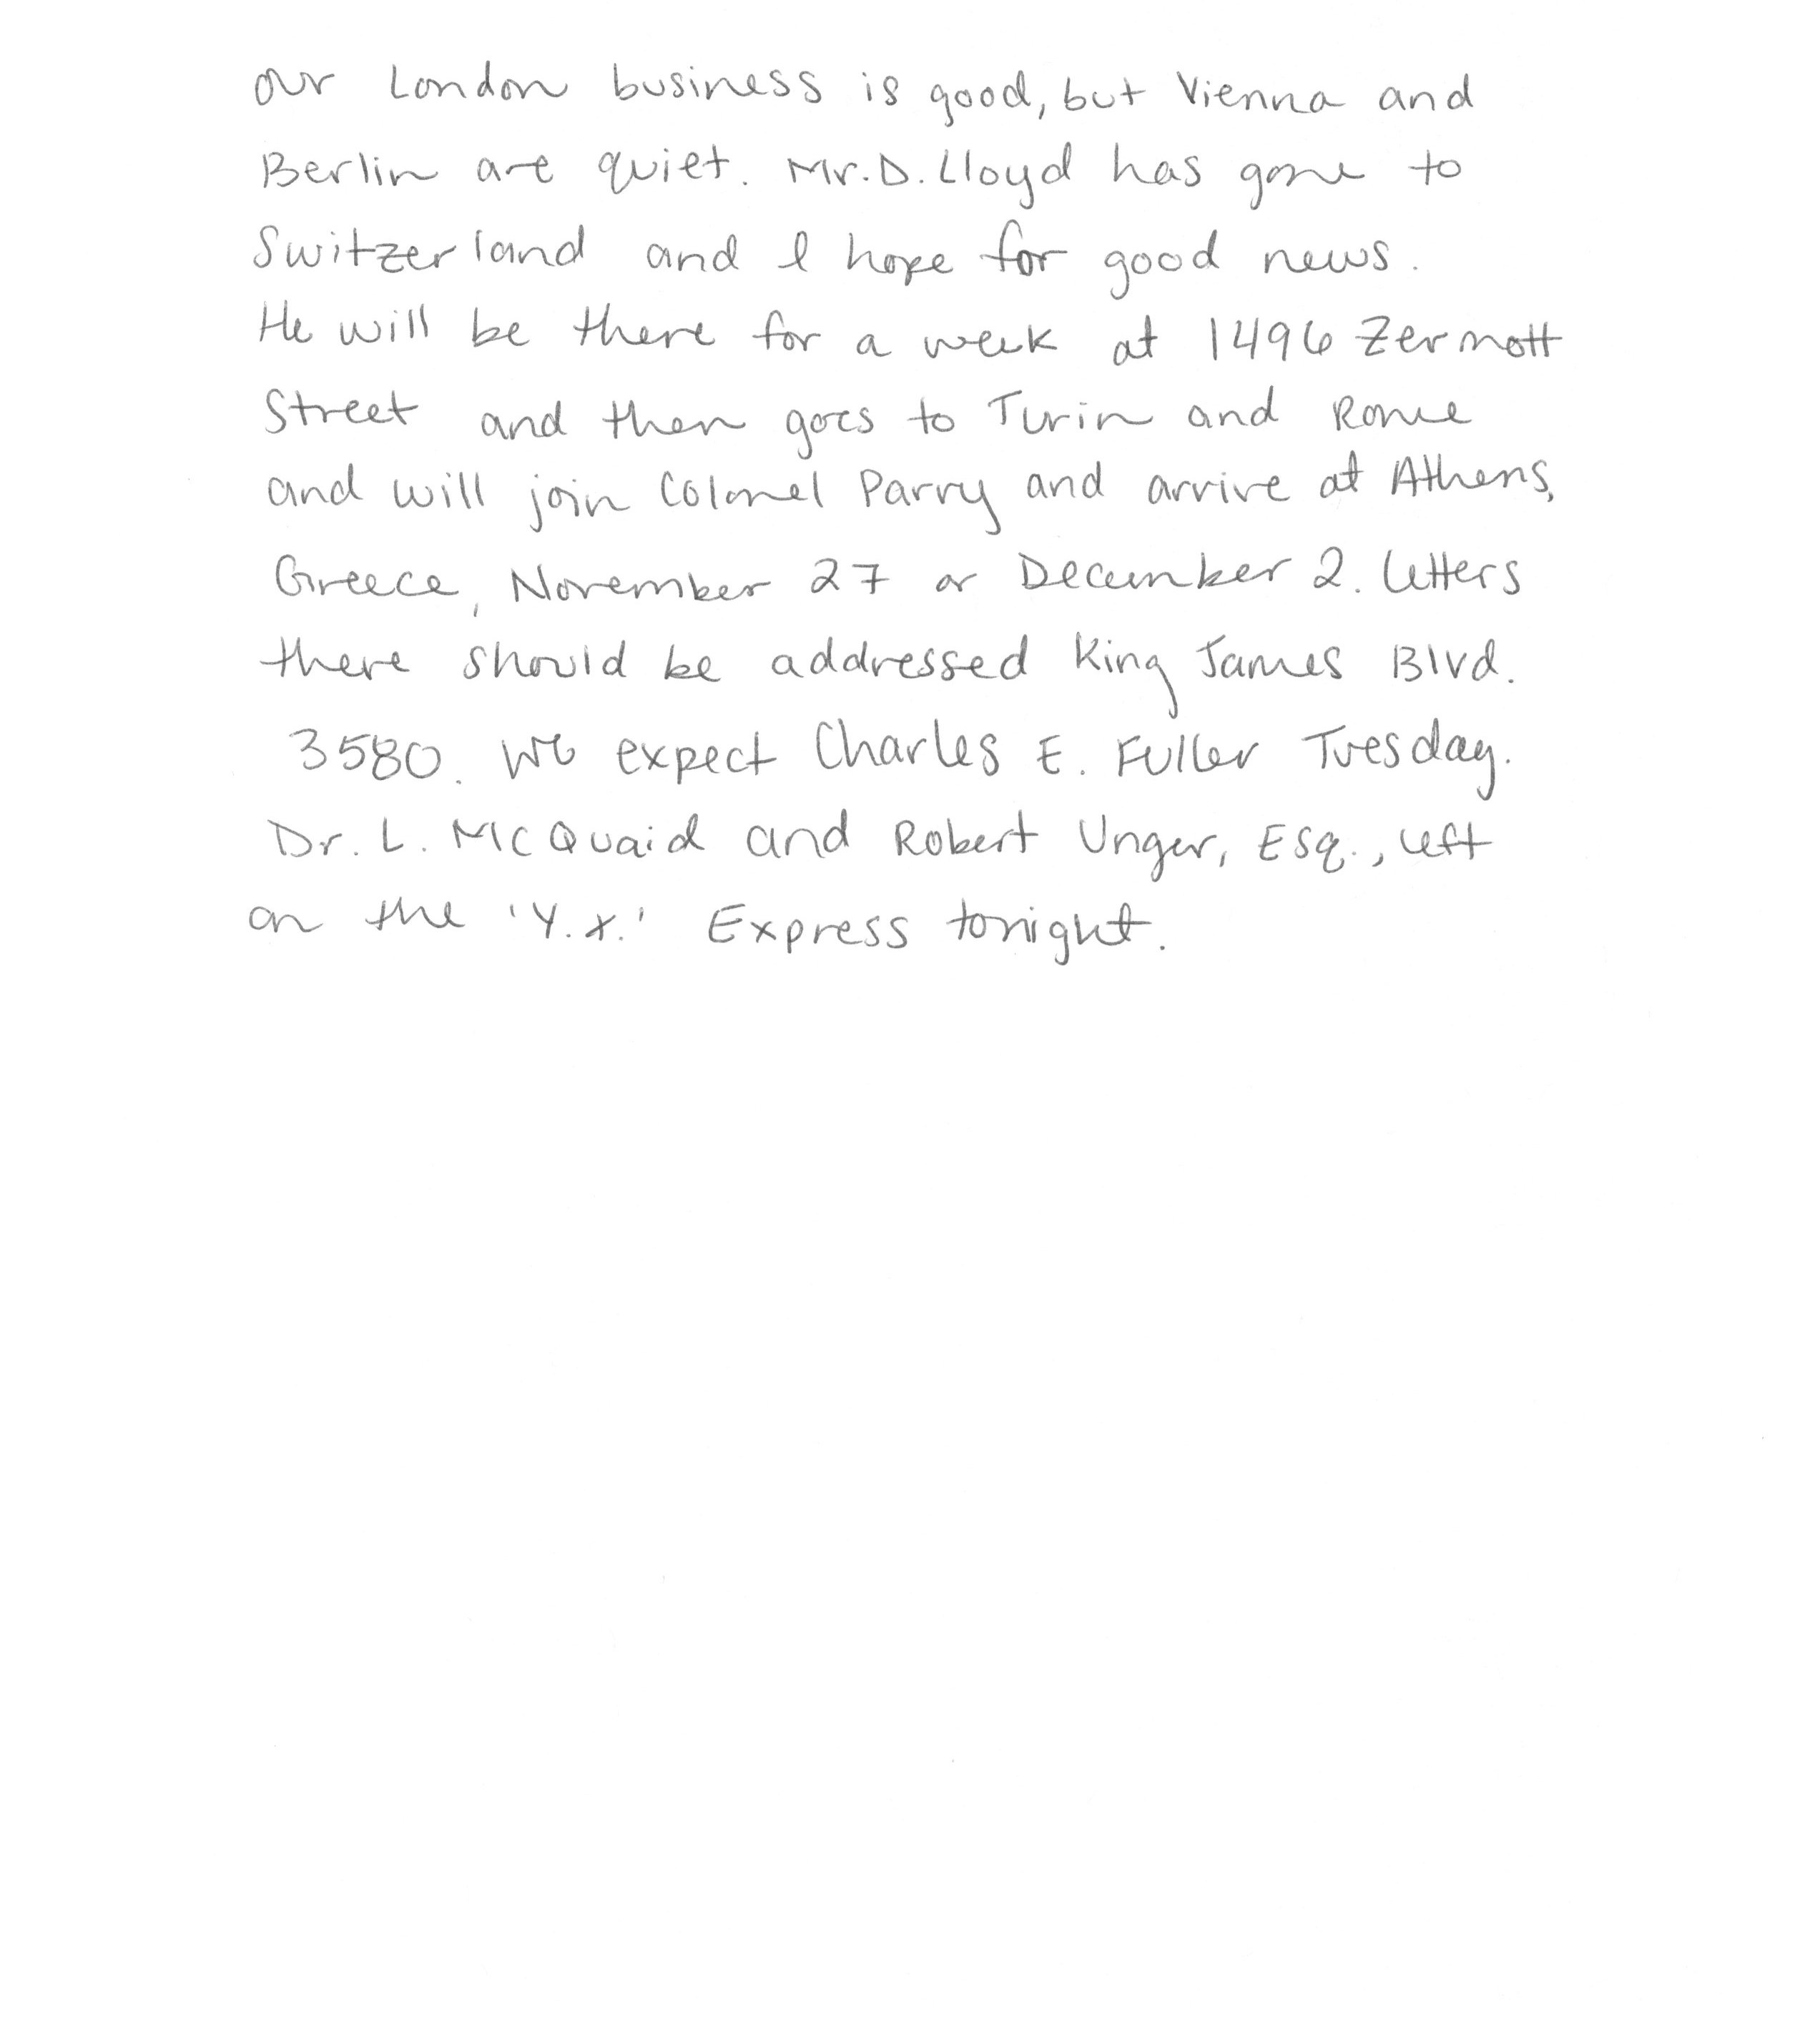 Our London business is good, but Vienna and
Berlin are quiet. Mr. D. Lloyd has gone to
Switzerland and I hope for good news.
He will be there for a week at 1496 Zermott
Street and then goes to Turin and Rome
and will join Colonel Parry and arrive at Athens,
Greece, November 27 or December 2. Letters
there should be addressed King James Blvd.
3580. We expect Charles E. Fuller Tuesday.
Dr. L. McQuaid and Robert Unger, Esq., left
on the 'Y.X.' Express tonight.